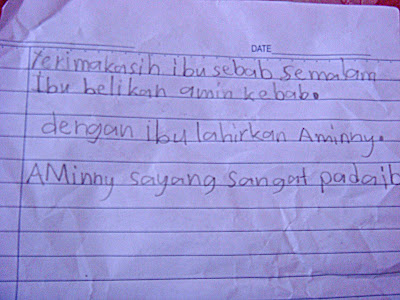 DATE
terimakasih ibu sebab semalam
Ibu belikan amin kebab.
dengan ibu lahirkan Aminny.
AMinny sayang sangat pada ib